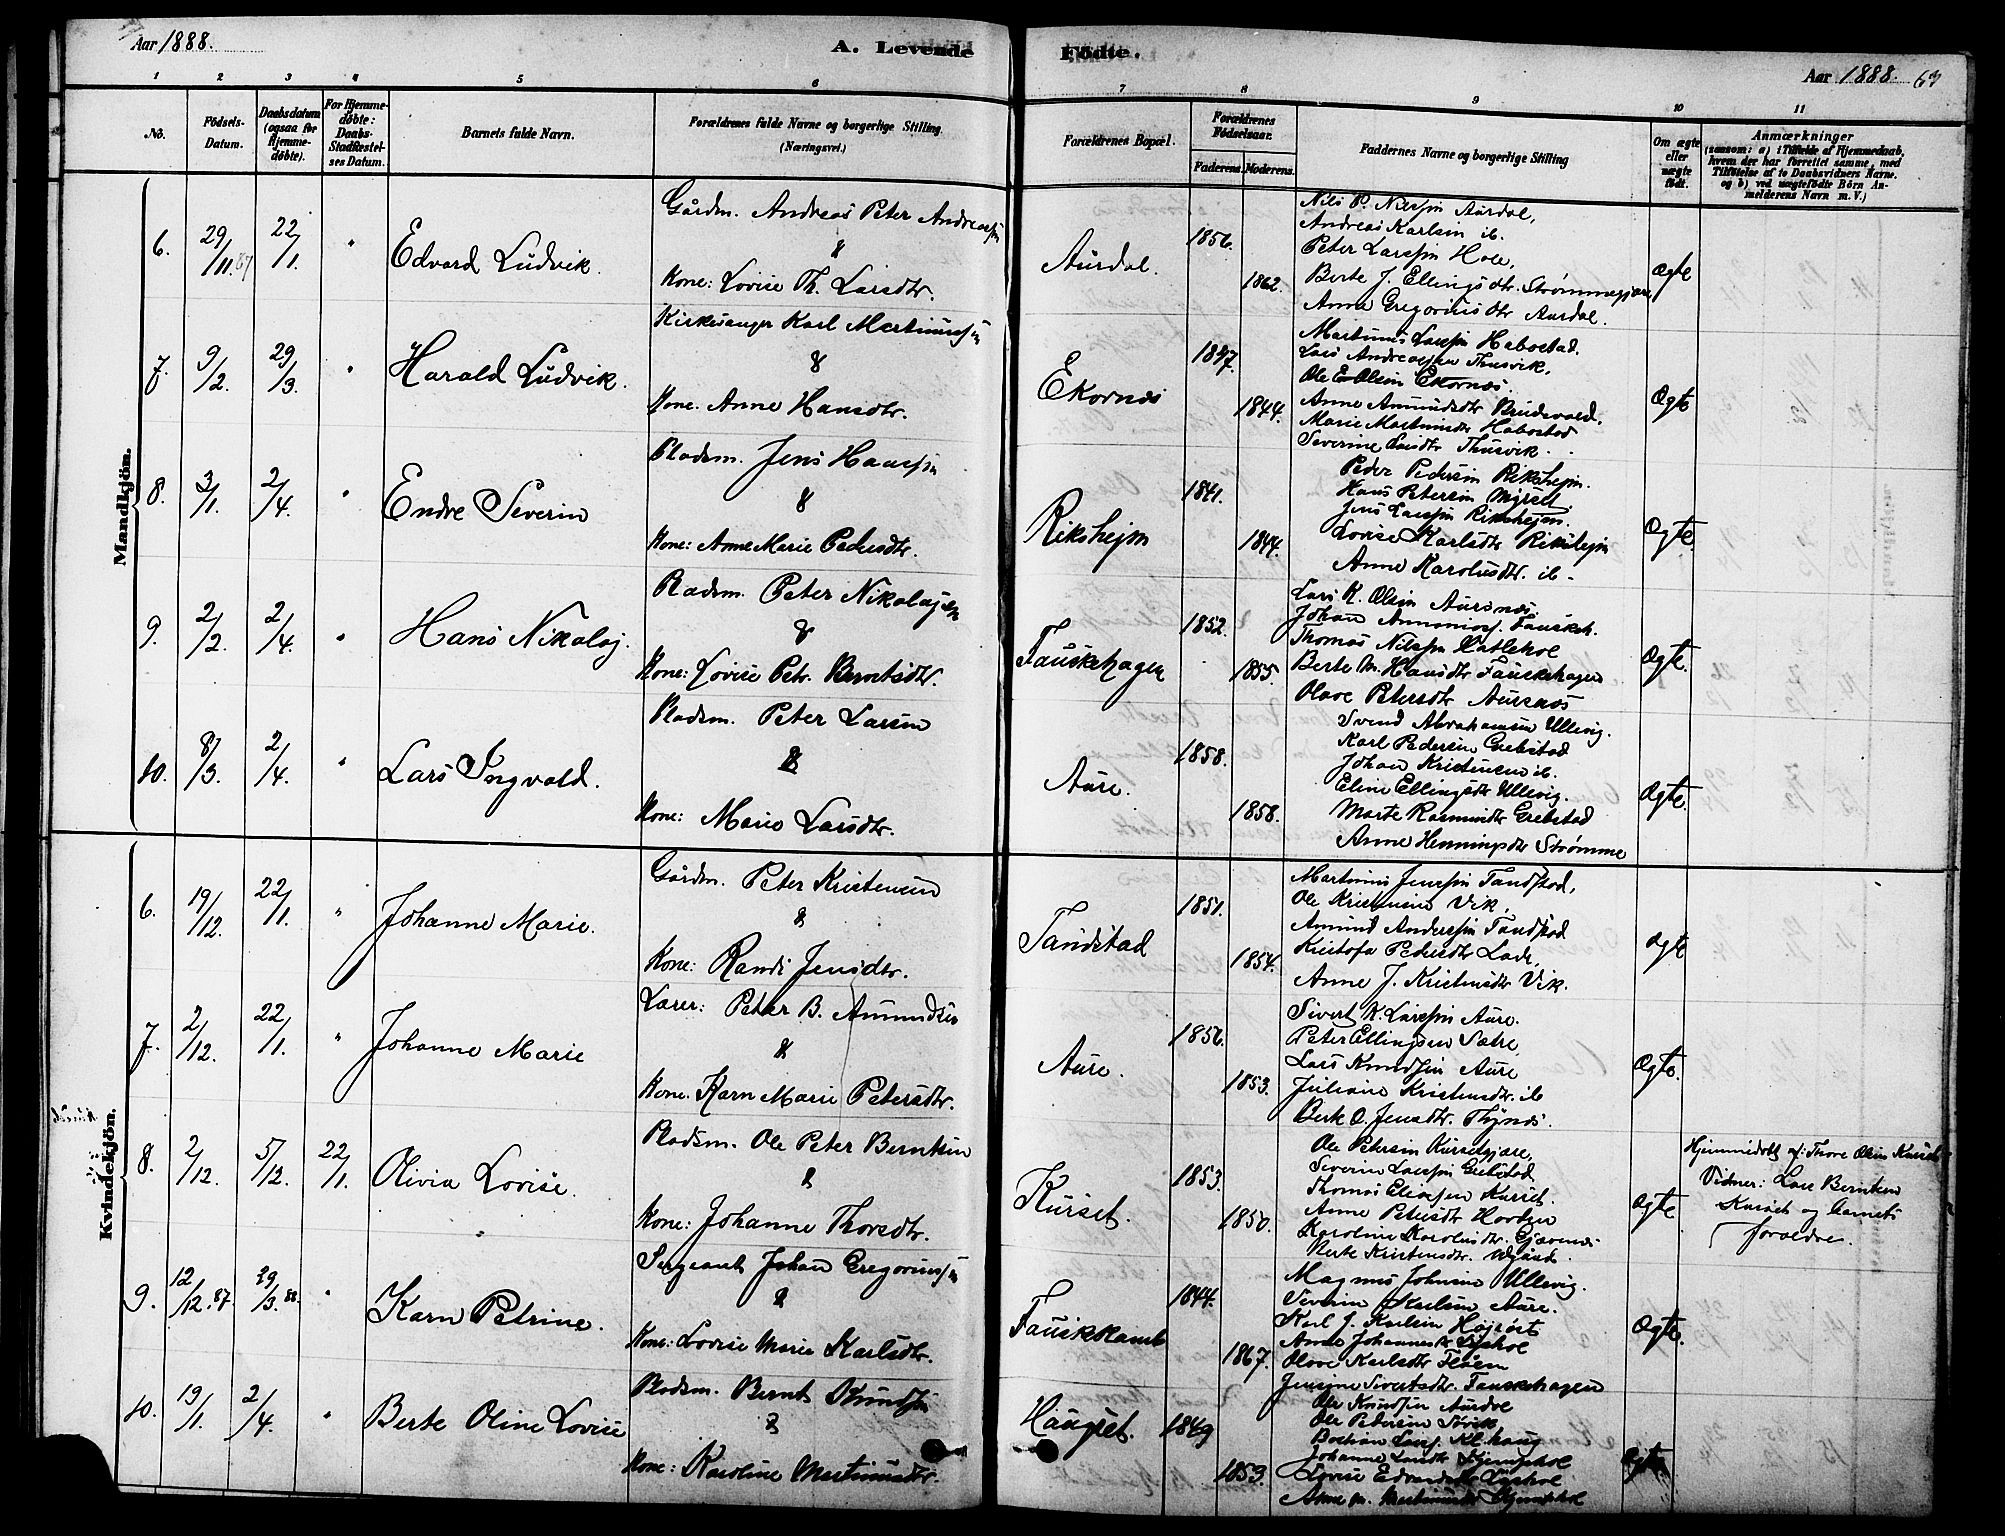 Aar 1888.
A. Levende
Fødte.
Aar 1888.
63
1 2 3 4 5 6 7 8 9 10 11
No.
Fødsels-Datum.
Daabsdatum (ogsaa for Hjemme-døbte).
For Hjemme-døbte: Daabs-Stadfæstel-ses Datum.
Barnets fulde Navn.
Forældrenes fulde Navne og borgerlige Stilling. (Næringsvei.)
Forældrenes Bopæl.
Forældrenes Fødselsaar.
Faderens. Moderens.
Faddernes Navne og borgerlige Stilling
Om ægte eller uægte født.
Anmærkninger
(saasom: a) i Tilfælde af Hjemmedaab,
hvem der har forrettet samme, med
Tilføielse af to Daabsvidners Navne.
og b) ved uægtefødte Börn An-
melderens Navn m. V.)
Mandkjön.
6. 29/11.87 22/1. " Edvard Ludvik.
Gårdm. Andreas Peter Andreassen
&
Kone: Lovise Th. Larsdtr.
Aurdal. 1856. 1862.
Nils P. Nilssen Aurdal,
Andreas Karlsen ib.
Peter Larssen Hole,
Berte J. Ellingsdtr. Strømmegjære
Anne Gregoriusdtr Aurdal.
Ægte
7. 9/2. 29/3. " Harald Ludvik.
Kirkesanger Karl Martinussen
&
Kone. Anne Hansdtr.
Ekornes 1847. 1844.
Martinus Larssen Habostad.
Lars Andreassen Thusvik.
Ole E Olsen Ekornes.
Anne Amundsdtr Brudevold.
Marie Martinsdtr Habostad
Severine Larsdtr Thusvik.
Ægte
8. 3/1. 2/4. " Endre Severin
Pladsm. Jens Hanssen
&
Kone: Anne Marie Pedersdtr.
Rikshejm 1841. 1844.
Peder Pedersen Rikshejm.
Hans Petersen Myrset
Jens Larssen Rikshejm.
Lovise Karlsdtr Rikshejm
Anne Karolusdtr. ib.
Ægte.
9. 2/2. 2/4. " Hans Nikolaj.
Pladsm. Peter Nikolajsen
&
Kone: Lovise Petr. Berntsdtr.
Fauskehagen 1852. 1855.
Lars K. Olsen Aursnes.
Johan Fauskeh.
Thomas Nilssen Hatlehol
Berte M. Hansdtr Fauskehagen
Olave Petersdtr Aursnes
Ægte.
10. 8/3. 2/4. " Lars Ingvald.
Pladsm. Peter Larsen
&
Kone: Marie Larsdtr.
Aure. 1858. 1858.
Svend Abrahamsen Ullevig.
Karl Pedersen Grebstad
Johan Kristensen ib.
Eline Ellingsdtr Ullevig.
Marte Rasmusdtr Grebstad
Anne Henningsdtr Strømme
Ægte.
Kvindekjön.
6. 19/12. 22/1. " Johanne Marie.
Gårdm. Peter Kristensen
&
Kone: Randi Jensdtr.
Tandstad 1851. 1854.
Martinus Jenssen Tandstad,
Ole Kristensen Vik,
Amund Anderssen Tandstad
Kristofa Pedersdtr Lade,
Anne J. Kristensdtr Vik.
Ægte
7. 2/12. 22/1. " Johanne Marie
Lærer: Peter B. Amundsen
&
Kone. Karn Marie Petersdtr.
Aure. 1856. 1853.
Sivert K. Larssen Aure.
Peter Ellingsen Sætre,
Lars Knudssen Aure
Juliane Kristensdtr. ib
Berte O. Jensdtr. Thynes.
Ægte.
8. 2/12. 5/12. 22/1. Olivia Lovise.
Pladsm. Ole Peter Berntsen
&
Kone: Johanne Thoresdtr.
Kurset. 1853. 1850.
Ole Petersen Kursetgjære,
Severin Larssen Grebstad
Thomas Eliassen Kurset.
Anne Petersdtr Hovden
Karoline Karolusdtr. Gjævenes
Berte Kristensdtr.
Ægte
Hjemmedøbt af: Thore Olsen Kurset
Vidner: Lars Berntsen
Kurset og barnets
forældre.
9. 12/12.87. 29/3.88. " Karn Petrine.
Sergeant Johan Gregoriussen
&
Kone: Lovise Marie Karlsdtr.
Fauskkamb 1844. 1867.
Magnus Johnsen Ullevig.
Severin Karlsen Aure.
Karl J. Karlsen
Anne Johannesdtr
Olave Karlsdtr Fløem
Jensine Sivertsdtr. Fauskehagen
Ægte.
10. 19/1. 2/4. " Berte Oline Lovise
Pladsm. Bernt Knudssen
&
Kone: Karoline Martinusdtr.
Haugset. 1849 1853.
Ole Knudssen Aurdal
Ole Petersen Løvik,
Bastian Larss. Kl.haug
Johanne Larsdtr
Lovise Edvardsdtr
Anne M. Martinusdtr
Ægte